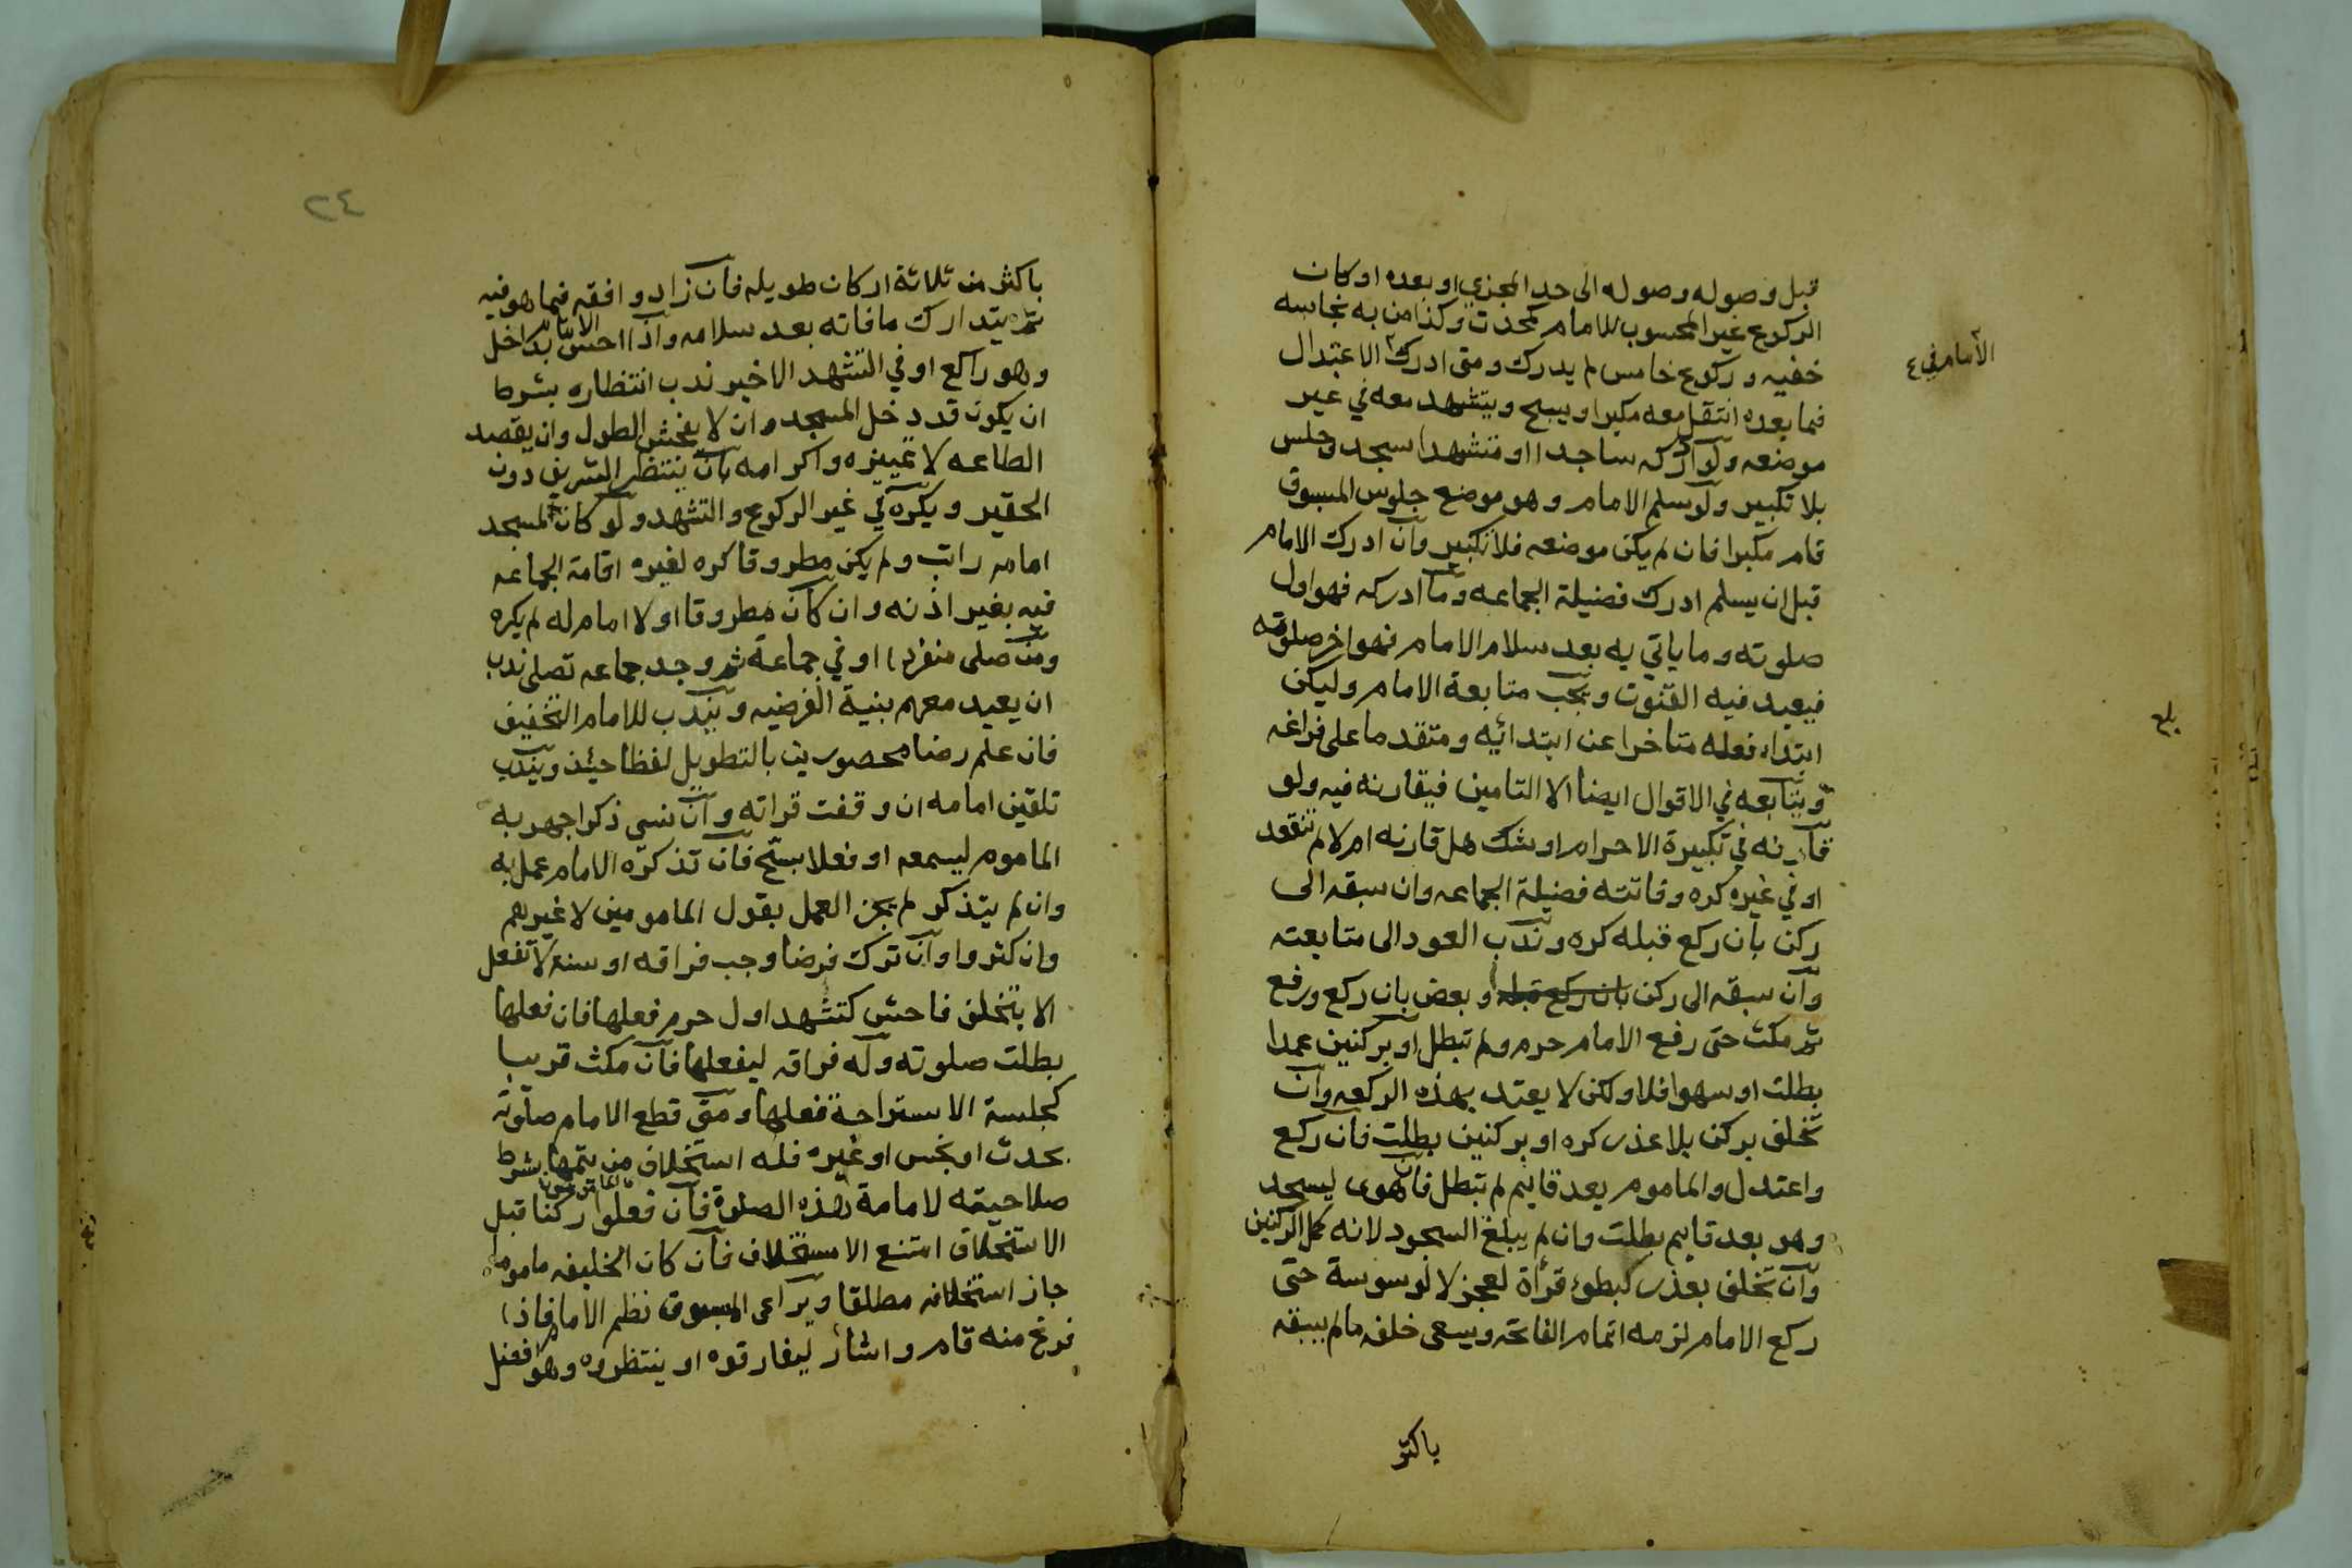 قبل وصوله وصوله الى حد المجزي او بعده او كان
الركوع غير المحسوب للامام كمحدث وكذا من به نجاسه
خفيه وركوع خامس لم يدرك ومتى ادرك الاعتدال
الامام في
فما بعده انتقل معه مكبرا ويسبح ويتشهد معه في غير
موضعه ولو ادركه ساجدا او متشهدا سجد وجلس
بلا تكبير ولو سلم الامام وهو موضع جلوس المسبوق
قام مكبرا فان لم يكن موضعه فلا تكبير وان ادرك الامام
قبل ان يسلم ادرك فضيلة الجماعه وما ادركه فهو اول
صلوته وما ياتي به بعد سلام الامام فهو اخر صلوته
فيعيد فيه القنوت ويجب متابعة الامام وليكن
ابتداء فعله متاخرا عن ابتدائيه ومتقدما على فراغه
بلغ
ويتابعه في الاقوال ايضا الا التامين فيقارنه فيه ولو
قارنه في تكبيرة الاحرام او شك هل قارنه ام لا لم تنعقد
او في غيره كره وفاتته فضيلة الجماعه وان سبقه الى
ركن بان ركع قبله كره وندب العود الى متابعته
وان سبقه الى ركن بان ركع قبله وبعض بان ركع ورفع
ثم مكث حتى رفع الامام حرم ولم تبطل او بركنين عمدا
بطلت او سهوا فلا ولكن لا يعتد بهذه الركعه وان
تخلف بركن بلا عذر كره او بركنين بطلت فان ركع
واعتدل والماموم بعد قايم لم تبطل فان هوى ليسجد
وهو بعد قايم بطلت وان لم يبلغ السجود لانه كمل الركنين
وان تخلف بعذر كبطوء قرأة لعجز لا لوسوسة حتى
ركع الامام لزمه اتمام الفاتحه ويسعى خلفه مالم يسبقه
باكثر
٢٤
باكثر من ثلاثة اركان طويله فان زاد وافقه فيما هو فيه
ثم يتدارك ما فاته بعد سلامه واذا احس الامام بداخل
وهو راكع او في التشهد الاخير ندب انتظاره بشرط
ان يكون قد دخل المسجد وان لا يفحش الطول وان يقصد
الطاعه لا تمييزه واكرامه بان ينتظر الشريف دون
الحقير ويكره في غير الركوع والتشهد ولو كان للمسجد
امام راتب ولم يكن مطروقا كره لغيره اقامة الجماعه
فيه بغير اذنه وان كان مطروقا او لا امام له لم يكره
ومن صلى منفردا او في جماعة ثم وجد جماعه تصلى ندب
ان يعيد معهم بنية الفرضيه ويندب للامام التخفيف
فان علم رضا محصورين بالتطويل لفظا حيئذ ويندب
تلقين امامه ان وقفت قراته وان نسى ذكرا جهر به
الماموم ليسمعه او فعلا سبح فان تذكره الامام عمل به
وان لم يتذكر لم يجز العمل بقول المامومين لا غيرهم
وان كثروا وان ترك فرضا وجب فراقه او سنة لا تفعل
الا بتخلف فاحش كتشهد اول حرم فعلها فان فعلها
بطلت صلوته وله فراقه ليفعلها فان مكث قريبا
كجلسة الاستراحة فعلها ومتى قطع الامام صلوته
بحدث او نجس او غيره فله استخلاف من يتمها بشرط
صلاحيته لامامة هذه الصلوة فان فعلوا ركنا قبل
الاستخلاف امتنع الاستخلاف فان كان الخليفه ماموما
جاز استخلافه مطلقا ويراعى المسبوق نظم الامام فاذا
فرغ منه قام واشار ليفارقوه او ينتظروه وهو افضل